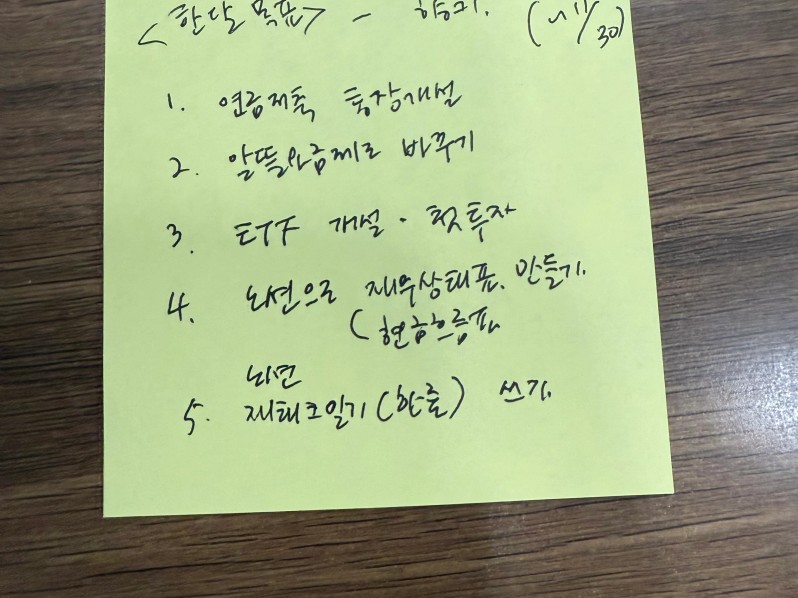 <한달 목표> -
1. 연금저축 통장개설
2. 알뜰요금제로 바꾸기
3. ETF 개설·첫투자
4. 노션으로 재무상태표, 만들기.
(현금흐름표
노션
5. 재테크일기(한줄) 쓰기.